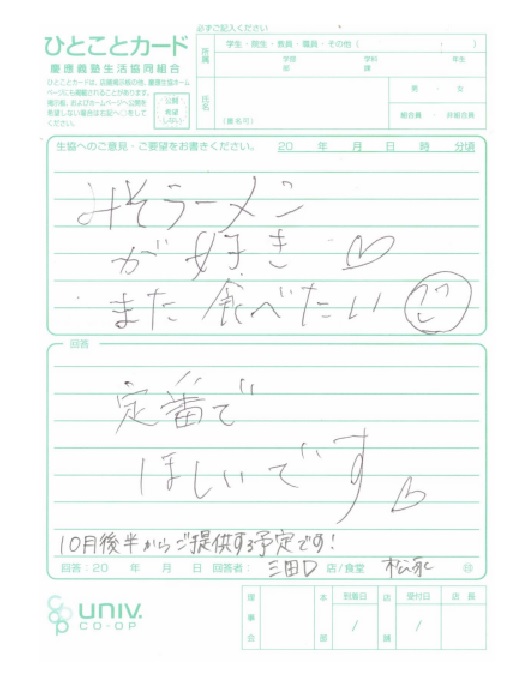 必ずご記入ください
ひとことカード
慶應義塾生活協同組合
ひとことカードは、店頭掲示板の他、慶應生協ホーム
ページにも掲載されることがあります。
掲示者、およびホームページへ公開を
希望しない場合は右記へ○をして
ください。
公開
希望
しない
所属
学生・院生・教員・職員・その他（　：　）
学部 学科 年生
部 課
氏名
（匿名可）
男 ・ 女
組合員 ・ 非組合員
生協へのご意見・ご要望をお書きください。 20 年 月 日 時 分頃
みそラーメン
が好き♡
また食べたい
回答
定番で
ほしいです♡
10月後半からご提供する予定です！
回答：20 年 月 日 回答者： 三田 店/食堂 松永 ㊞
UNIV.
CO-OP
理事会
本部
到着日
/
店舗
受付日
/
店長